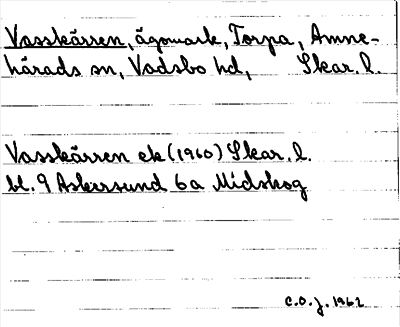 Vasskärren, ägomark, Torpa, Amne-
härads sn, Vadsbo hd, Skar. l.
Vasskärren ek (1960) Skar. l.
bl. 9 Askersund 6a Midskog
C.O.J. 1962